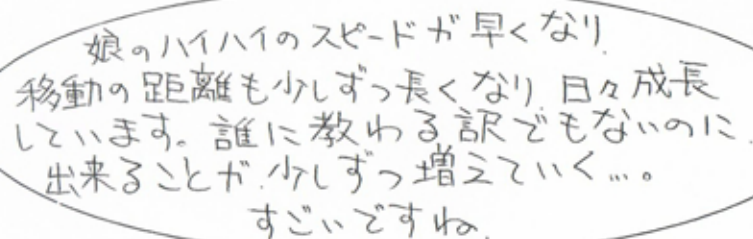 娘のハイハイのスピードが早くなり
移動の距離も少しずつ長くなり、日々成長
しています。誰に教わる訳でもないのに
出来ることが、少しずつ増えていく…。
すごいですね。